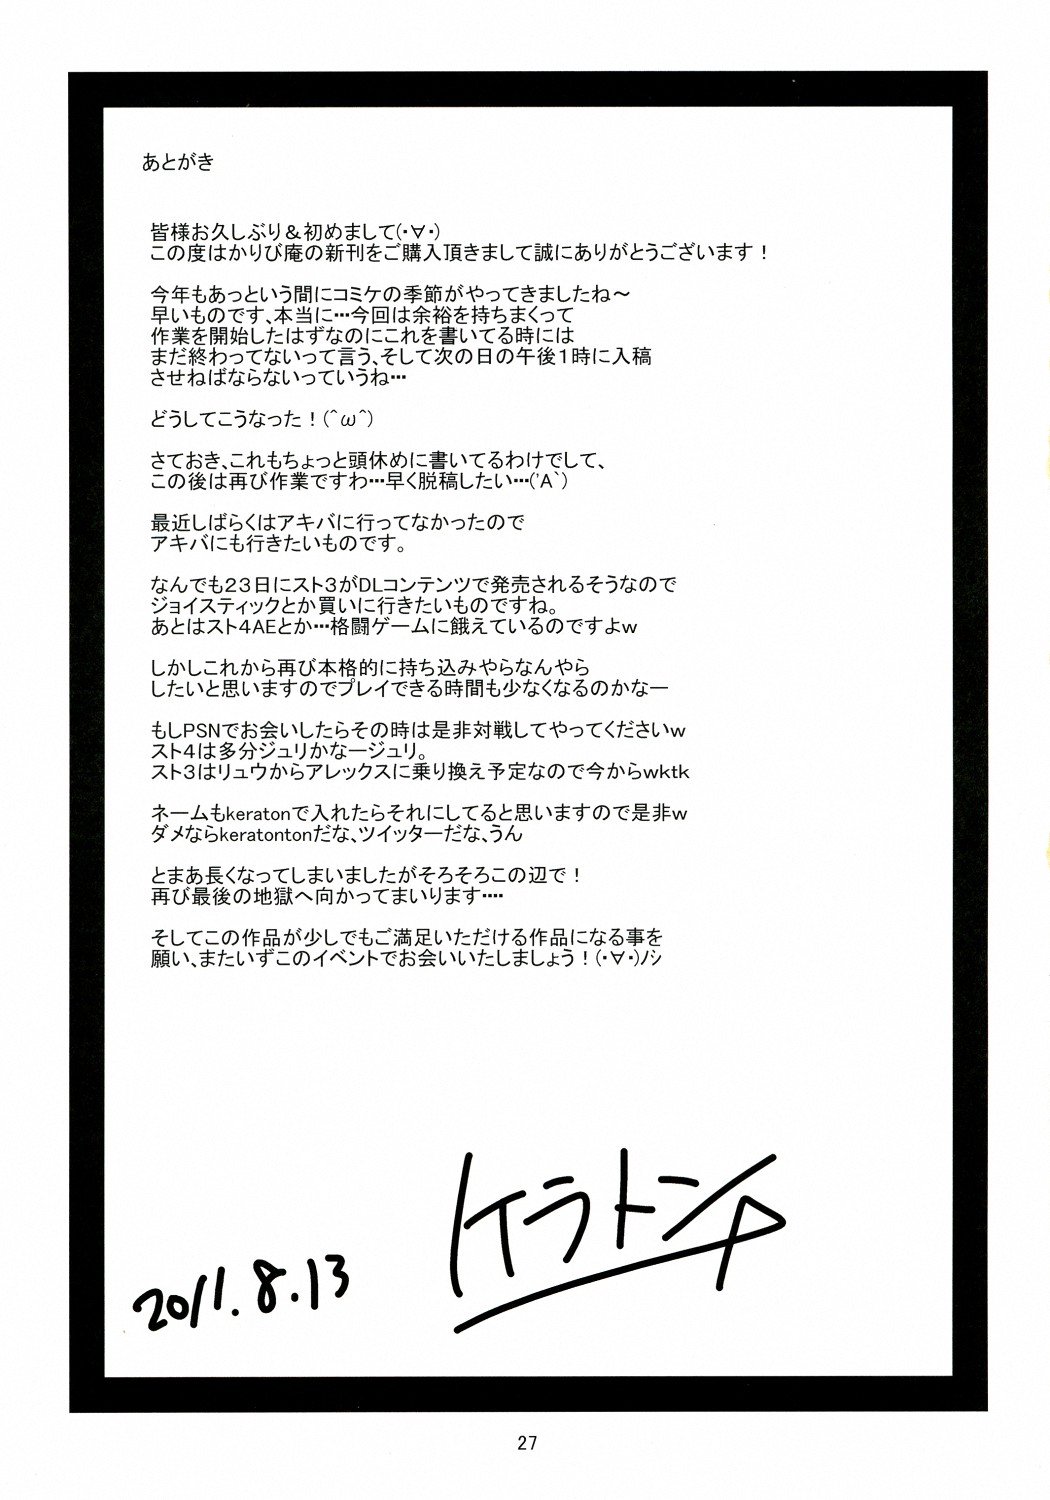 あとがき
皆様お久しぶり＆初めまして(・∀・)
この度はかりび庵の新刊をご購入頂きまして誠にありがとうございます！
今年もあっという間にコミケの季節がやってきましたね～
早いものです、本当に…今回は余裕を持ちまくって
作業を開始したはずなのにこれを書いてる時には
まだ終わってないって言う、そして次の日の午後１時に入稿
させねばならないっていうね…
どうしてこうなった！(＾ω＾)
さておき、これもちょっと頭休めに書いてるわけでして、
この後は再び作業ですわ…早く脱稿したい…('A`)
最近しばらくはアキバに行ってなかったので
アキバにも行きたいものです。
なんでも２３日にスト３がDLコンテンツで発売されるそうなので
ジョイスティックとか買いに行きたいものですね。
あとはスト４AEとか…格闘ゲームに餓えているのですよｗ
しかしこれから再び本格的に持ち込みやらなんやら
したいと思いますのでプレイできる時間も少なくなるのかなー
もしPSNでお会いしたらその時は是非対戦してやってくださいｗ
スト４は多分ジュリかなージュリ。
スト３はリュウからアレックスに乗り換え予定なので今からwktk
ネームもkeratonで入れたらそれにしてると思いますので是非ｗ
ダメならkeratontonだな、ツイッターだな、うん
とまあ長くなってしまいましたがそろそろこの辺で！
再び最後の地獄へ向かってまいります‥‥
そしてこの作品が少しでもご満足いただける作品になる事を
願い、またいずこのイベントでお会いいたしましょう！(・∀・)ﾉｼ
ケラトン
2011.8.13
27